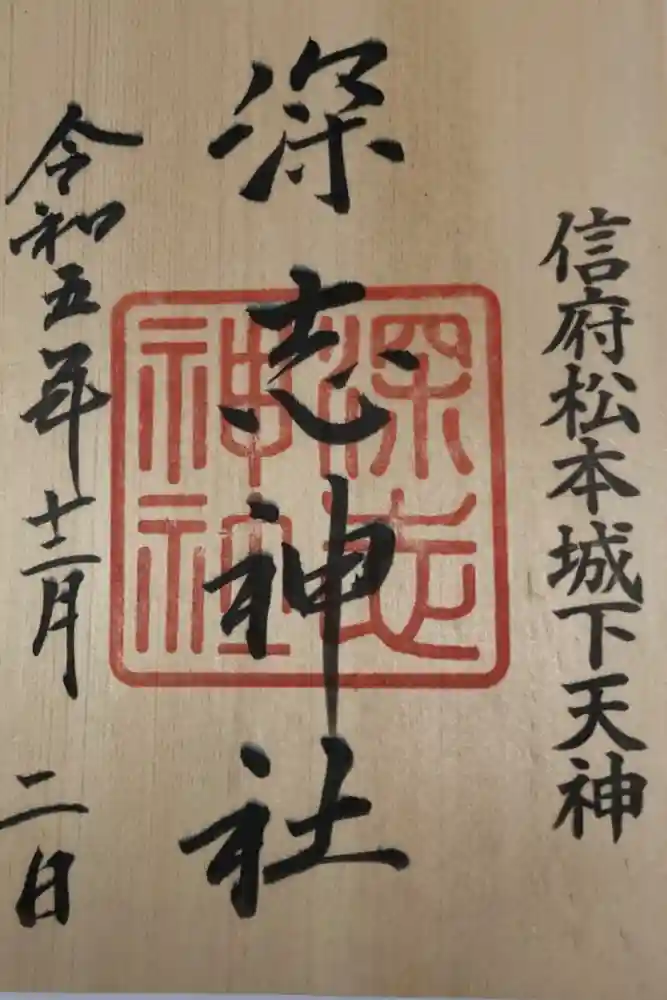 信府松本城下天神
深志神社
深志神社
令和五年十二月二日